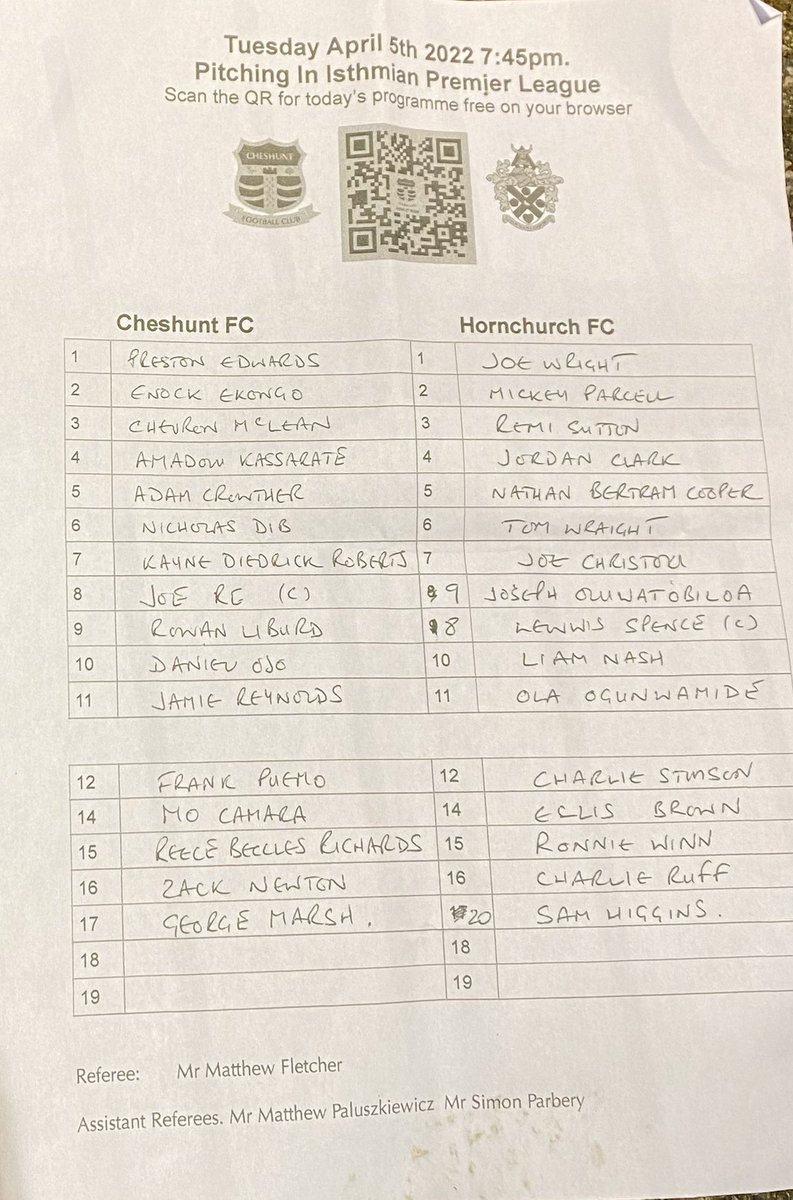 Tuesday April 5th 2022 7:45pm.
Pitching In Isthmian Premier League
Scan the QR for today's programme free on your browser
CHESHUNT
FOOTBALL CLUB
Cheshunt FC Hornchurch FC
1 PRESTON EDWARDS 1 JOE WRIGHT
2 ENOCK EKONGO 2 MICKEY PARCELL
3 CHEVRON McLEAN 3 REMI SUTTON
4 AMADOW KASSARATE 4 JORDAN CLARK
5 ADAM CROWTHER 5 NATHAN BERTRAM COOPER
6 NICHOLAS DIB 6 TOM WRAIGHT
7 KAYNE DIEDRICK ROBERTS 7 JOE CHRISTOU
8 JOE RE (C) 9 JOSEPH OLUWATOBILOA
9 ROWAN LIBURD 8 LEWWIS SPENCE (C)
10 DANIEL OJO 10 LIAM NASH
11 JAMIE REYNOLDS 11 OLA OGUNWAMIDE
12 FRANK PUEMO 12 CHARLIE STIMSON
14 MO CAMARA 14 ELLIS BROWN
15 REECE BECCLES RICHARDS 15 RONNIE WINN
16 ZACK NEWTON 16 CHARLIE RUFF
17 GEORGE MARSH. 20 SAM HIGGINS.
18 18
19 19
Referee: Mr Matthew Fletcher
Assistant Referees. Mr Matthew Paluszkiewicz Mr Simon Parbery